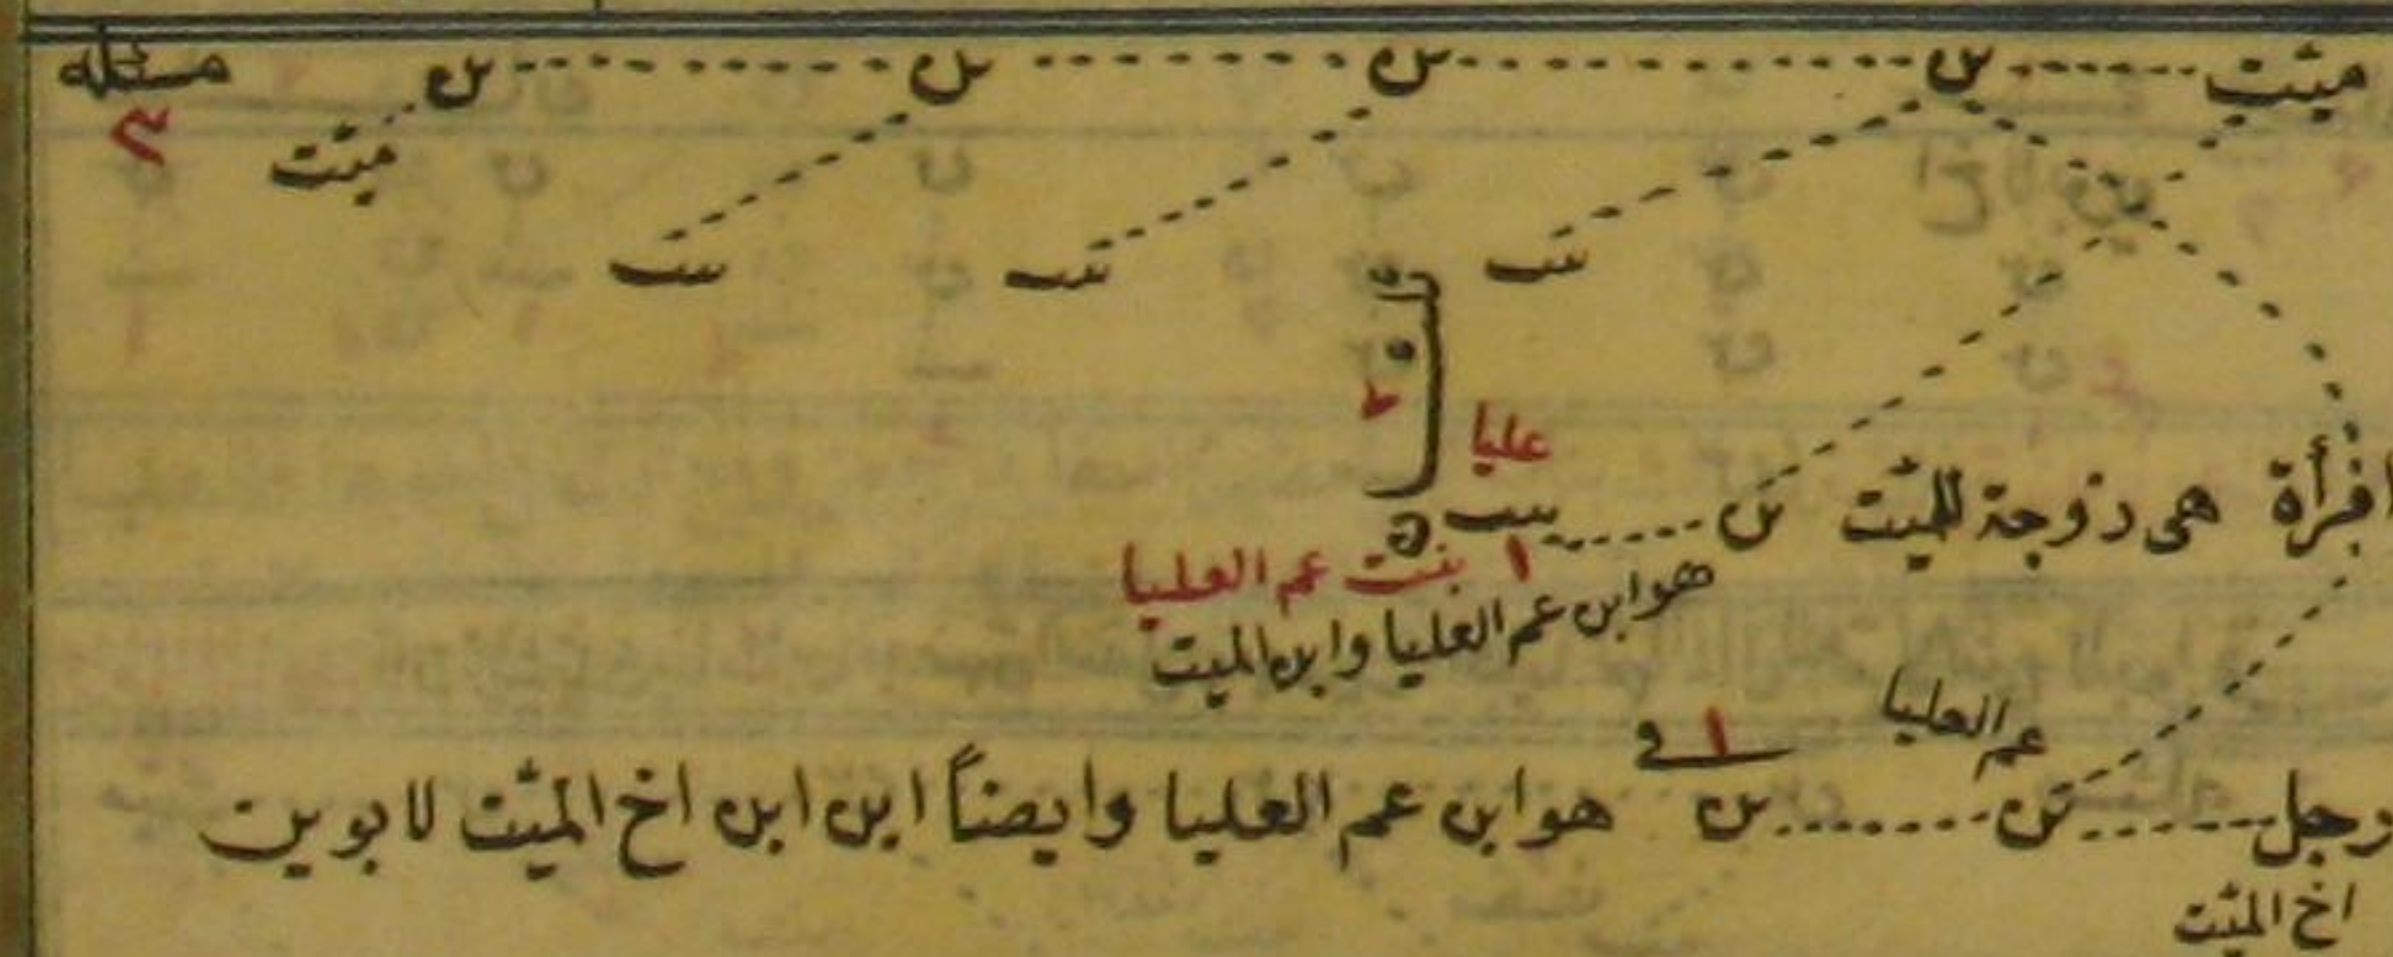 ميّت بن بن بن بن مسئله
ميّت ٣
ست ست ست
٢
عليا
امرأة هى زوجة للميّت بن ست
١ بنت عم العليا
هو ابن عم العليا وابن الميت
عم العليا ١
رجل بن بن هو ابن عم العليا وايضاً ابن ابن اخ الميّت لابوين
اخ الميّت